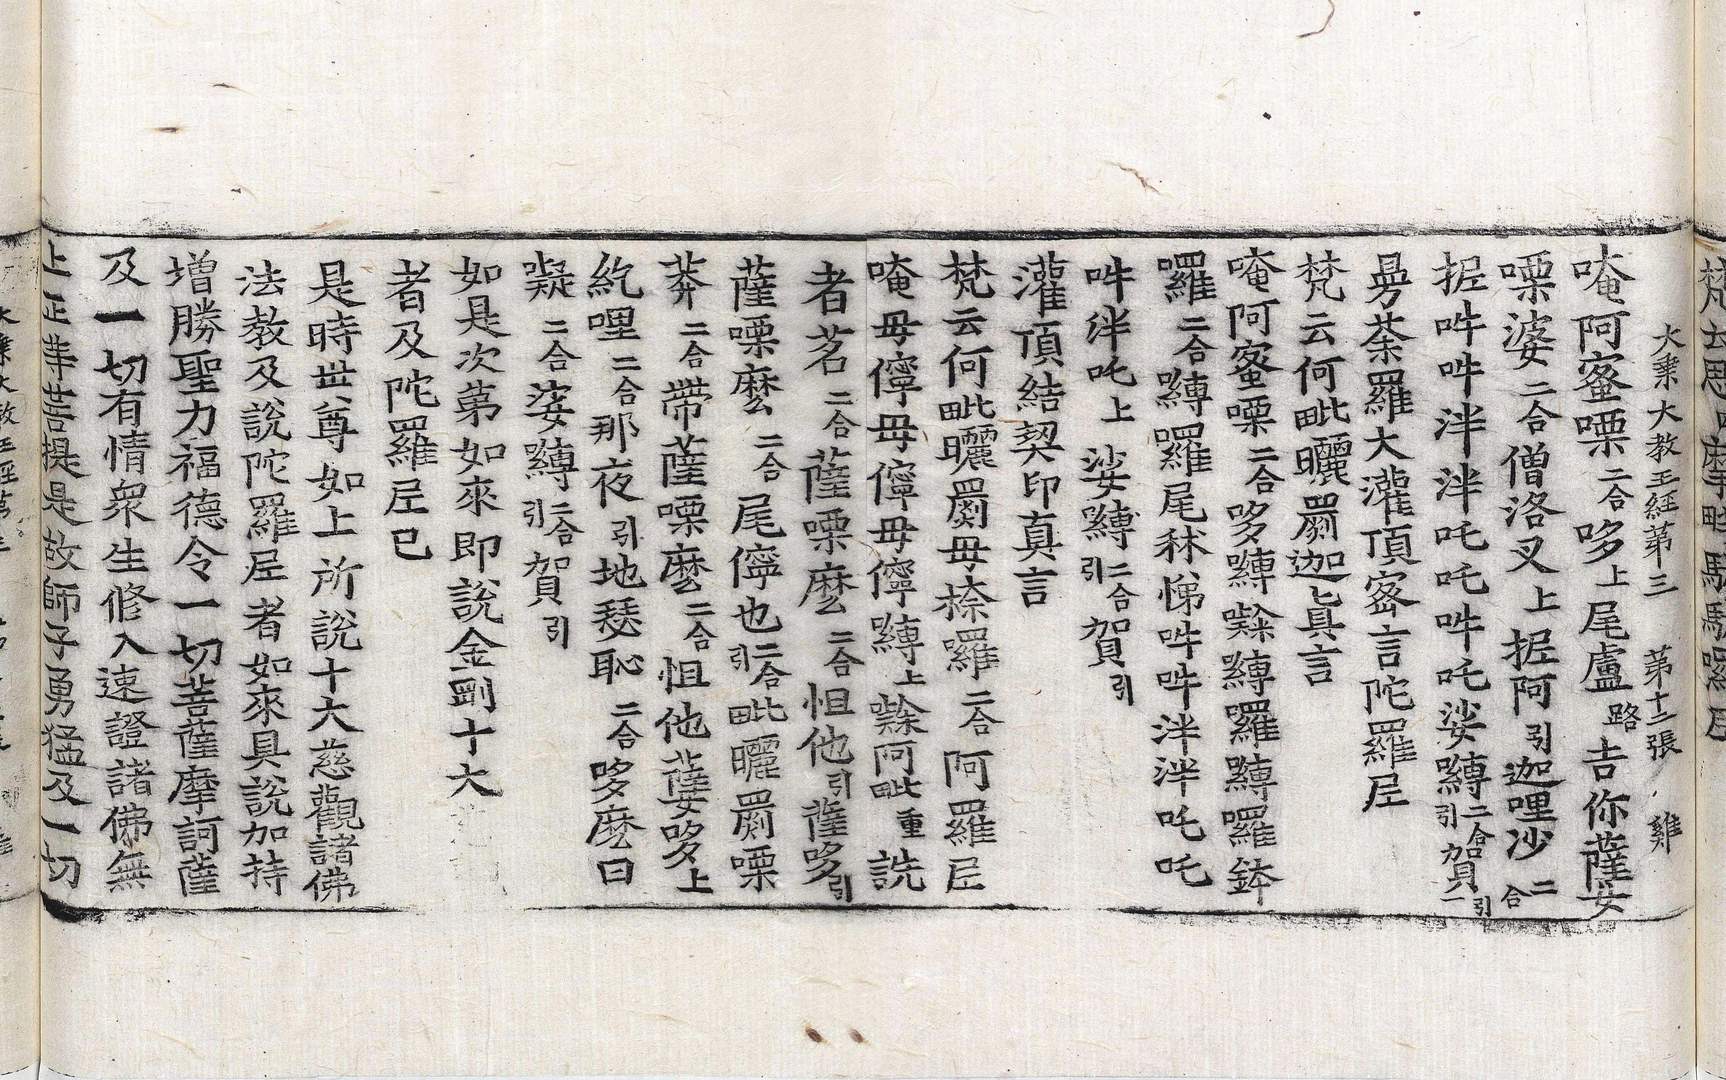 大乗大教王經第三 第十二張 雞
唵阿蜜㗚二合哆上尾盧路𠮷你薩
㗚婆二合僧洛叉上抳阿引迦哩沙二合
抳吽吽泮泮吒吒吽吒娑嚩二合引賀一引
曼荼羅大灌頂密言陀羅𡰱
梵云何毗曬罽迦真言
唵阿蜜㗚二合哆嚩嚩囉嚩囉鉢
囉二合嚩囉尾秫悌吽吽泮泮吒吒
吽泮吒上娑嚩二合引賀引
灌頂結契印真言
梵云何毗曬罽毋捺囉二合阿羅𡰱
唵毋儜毋儜毋儜嚩上阿毗重詵
者茗二合薩㗚麼二合怛他引薩哆引
薩㗚麼二合尾儜也二合引毗曬罽㗚
莾二合帶薩㗚麼二合怛他薩哆上
紇哩二合那夜引地瑟恥二合哆麼曰
凝二合娑嚩二合引賀引
如是次第如來即說金剛十大
者及陀羅𡰱已
是時世尊如上所說十大慈觀諸佛
法教及說陀羅𡰱者如來具說加持
增勝聖力福德令一切菩薩摩訶薩
及一切有情衆生修入速證諸佛無
上正等菩提是故師子勇猛及一切